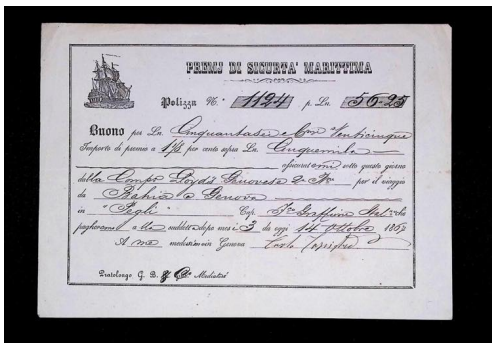 PREMJ DI SICURTA' MARITTIMA
Polizza N.º 1124 p. Ln. 56-25
Buono per Ln. Cinquantasei e Cmi Venticinque
Importo di premio a 1⅛ per cento sopra Ln. Cinquemila
assicuratomi sotto questo giorno
dalla Compa Lloyd's Genovese per il viaggio
da Bahia a Genova
in "Pegli" Cap.
pagheremo alla suddetta dopo mesi 3 da oggi 14 Ottobre
A me mediatori in Genova
Pratolongo G. B. & Cº Mediatori